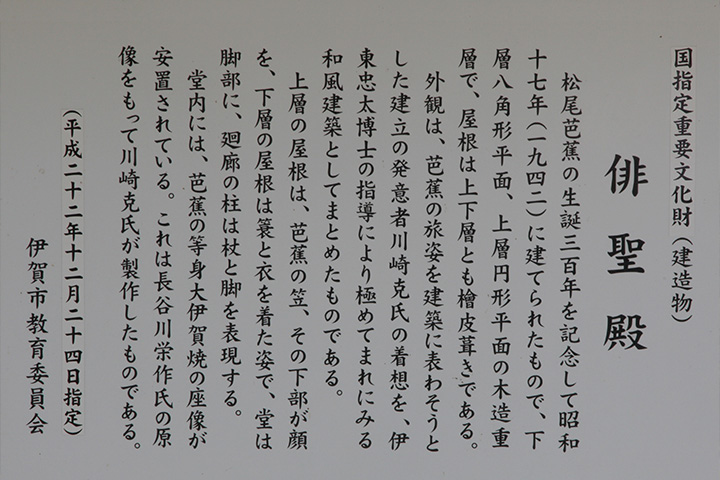 国指定重要文化財（建造物）
俳聖殿
松尾芭蕉の生誕三百年を記念して昭和
十七年（一九四二）に建てられたもので、下
層八角形平面、上層円形平面の木造重
層で、屋根は上下層とも檜皮葺きである。
外観は、芭蕉の旅姿を建築に表わそうと
した建立の発意者川崎克氏の着想を、伊
東忠太博士の指導により極めてまれにみる
和風建築としてまとめたものである。
上層の屋根は、芭蕉の笠、その下部が顔
を、下層の屋根は簑と衣を着た姿で、堂は
脚部に、廻廊の柱は杖と脚を表現する。
堂内には、芭蕉の等身大伊賀焼の座像が
安置されている。これは長谷川栄作氏の原
像をもって川崎克氏が製作したものである。
（平成二十二年十二月二十四日指定）
伊賀市教育委員会